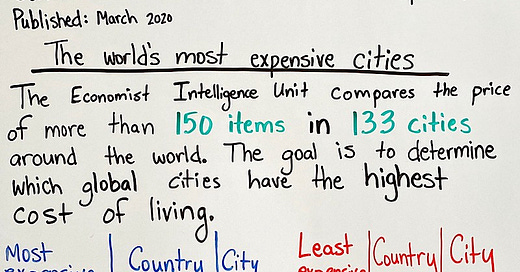 Published: March 2020
The world's most expensive cities
The Economist Intelligence Unit compares the price
of more than 150 items in 133 cities
around the world. The goal is to determine
which global cities have the highest
cost of living.
Most | Country | City Least | Country | City
expensive expensive